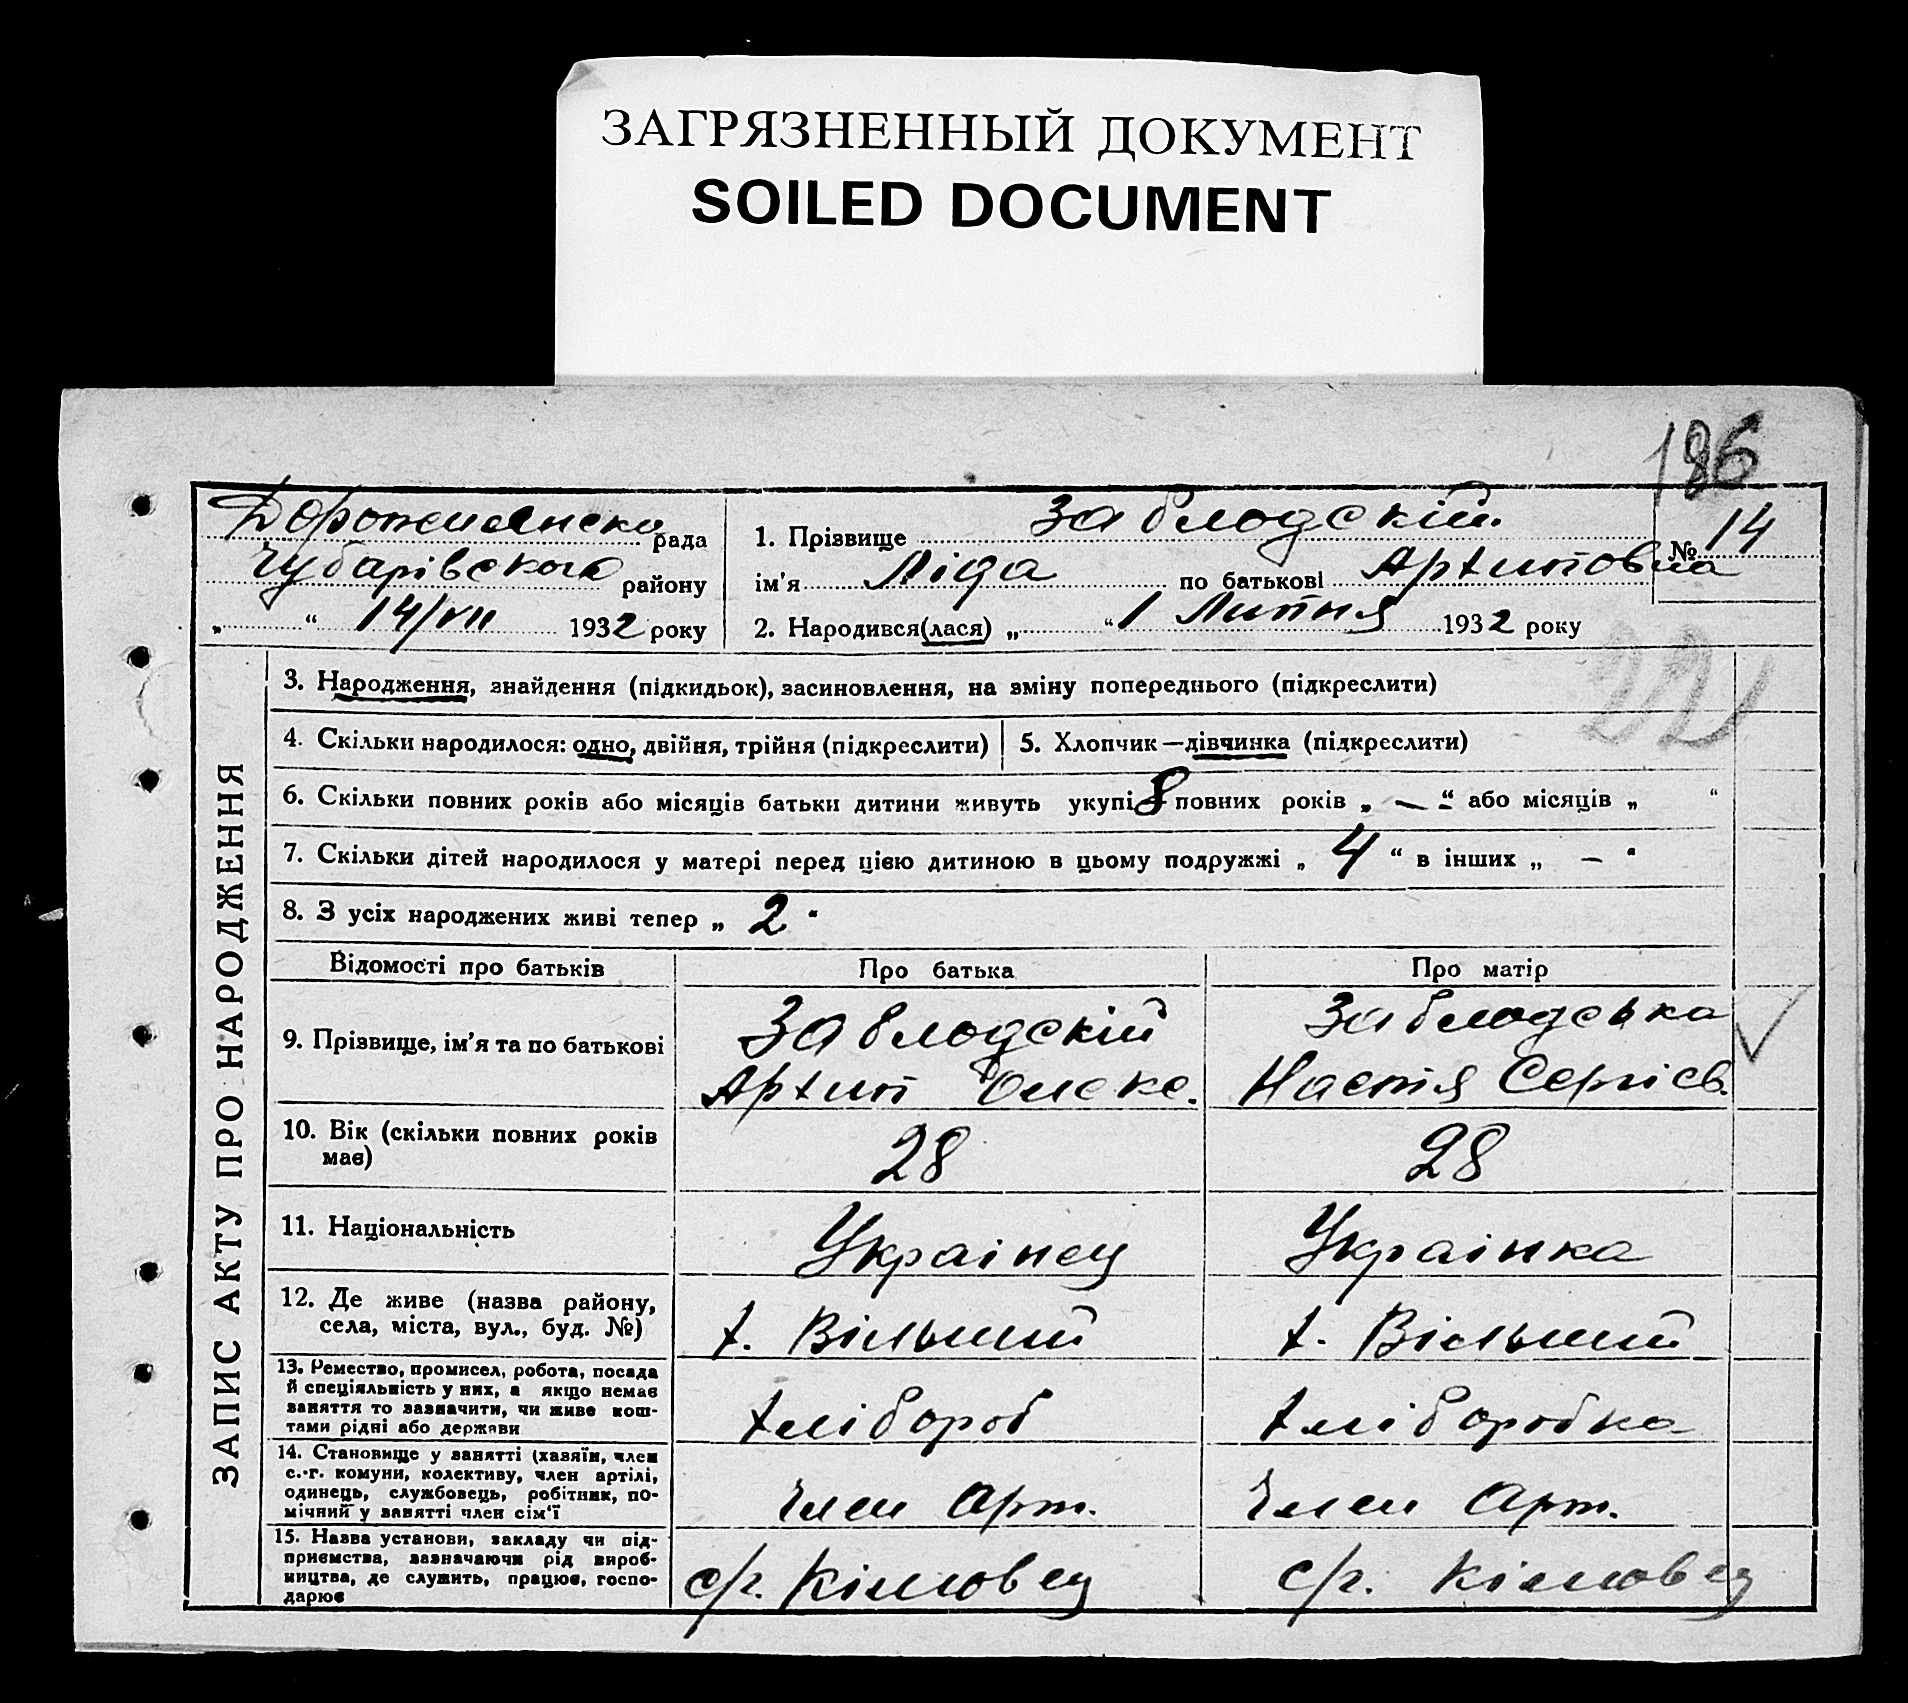 ЗАГРЯЗНЕННЫЙ ДОКУМЕНТ
SOILED DOCUMENT
186
рада
Чубарівського району
„ “ 14/VII 1932 року
1. Прізвище Заблодскій
№ 14
ім'я Ліда по батькові Архиповна
2. Народився(лася) „ “ 1 Липня 1932 року
221
ЗАПИС АКТУ ПРО НАРОДЖЕННЯ
3. Народження, знайдення (підкидьок), засиновлення, на зміну попереднього (підкреслити)
4. Скільки народилося: одно, двійня, трійня (підкреслити)
5. Хлопчик—дівчинка (підкреслити)
6. Скільки повних років або місяців батьки дитини живуть укупі 8 повних років „ — “ або місяців „ “
7. Скільки дітей народилося у матері перед цією дитиною в цьому подружжі „ 4 “ в інших „ — “
8. З усіх народжених живі тепер „ 2 “
Відомості про батьків
Про батька
Про матір
9. Прізвище, ім'я та по батькові
Заблодскій
Архип Олекс.
Заблодська
Настя Сергієв.
10. Вік (скільки повних років
має)
28
28
11. Національність
Украінец
Украінка
12. Де живе (назва району,
села, міста, вул., буд. №)
х. Вільний
х. Вільний
13. Ремество, промисел, робота, посада
й спеціяльність у них, а якщо немає
заняття то зазначити, чи живе кош-
тами рідні або держави
хлібороб
хліборобка
14. Становище у занятті (хазяїн, член
с.-г. комуни, колективу, член артілі,
одинець, службовець, робітник, по-
мічний у занятті член сім'ї
Член Арт.
Член Арт.
15. Назва установи, закладу чи під-
приємства, зазначаючи рід вироб-
ництва, де служить, працює, госпо-
дарює
с/г.
с/г.